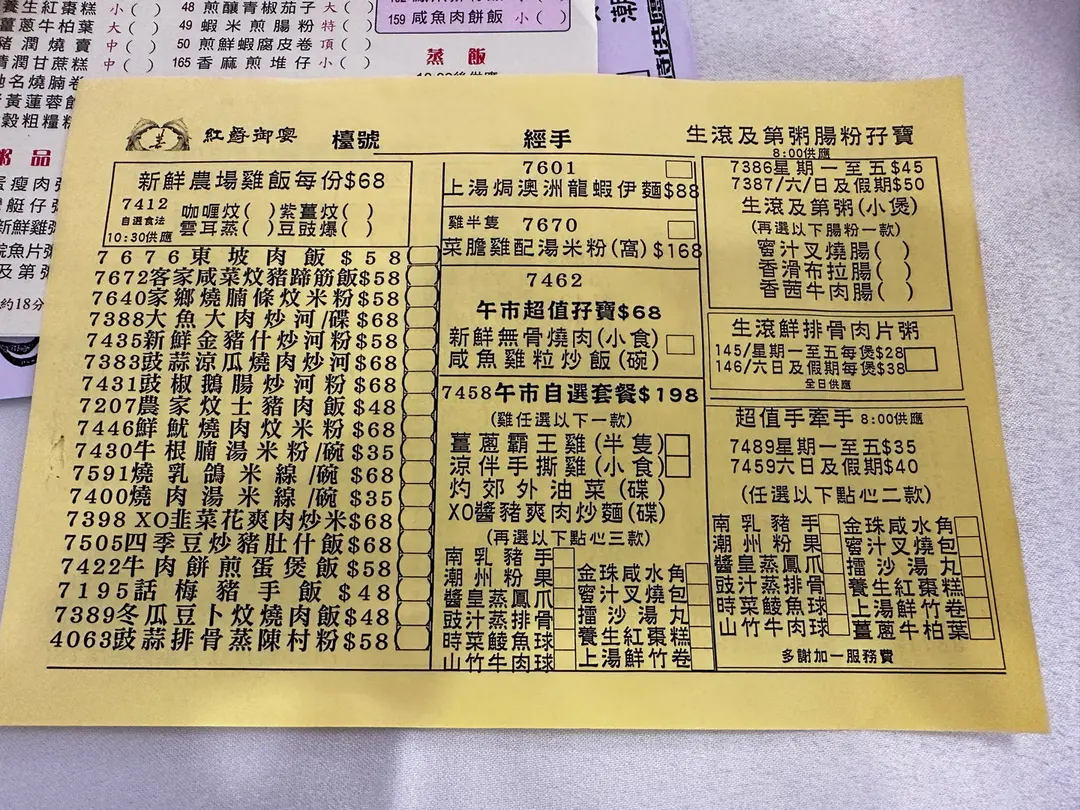 養生紅棗糕 小( )
薑蔥牛柏葉 大( )
豬潤燒賣 中( )
清潤甘蔗糕 中( )
名燒腩卷
黃蓮蓉
穀粗糧
粥品
瘦肉
艇仔
新鮮雞
魚片
及第
約18分
48 煎釀青椒茄子 大( )
49 蝦米煎腸粉 特( )
50 煎鮮蝦腐皮卷 頂( )
165 香麻煎堆仔 小( )
159 咸魚肉餅飯 小( )
蒸飯
潮
紅爵御宴
檯號
經手
生滾及第粥腸粉孖寶
8:00供應
新鮮農場雞飯每份$68
7412
自選食法
10:30供應
咖喱炆( )紫薑炆( )
雲耳蒸( )豆豉爆( )
7676東坡肉飯$58
7672客家咸菜炆豬蹄筋飯$58
7640家鄉燒腩條炆米粉$58
7388大魚大肉炒河/碟$68
7435新鮮金豬什炒河粉$58
7383豉蒜涼瓜燒肉炒河$68
7431豉椒鵝腸炒河粉$68
7207農家炆士豬肉飯$48
7446鮮魷燒肉炆米粉$68
7430牛根腩湯米粉/碗$35
7591燒乳鴿米線/碗$68
7400燒肉湯米線/碗$35
7398 XO韭菜花爽肉炒米$68
7505四季豆炒豬肚什飯$68
7422牛肉餅煎蛋煲飯$58
7195話梅豬手飯$48
7389冬瓜豆卜炆燒肉飯$48
4063豉蒜排骨蒸陳村粉$58
7601
上湯焗澳洲龍蝦伊麵$88
雞半隻 7670
菜膽雞配湯米粉(窩)$168
7462
午市超值孖寶$68
新鮮無骨燒肉(小食)
咸魚雞粒炒飯(碗)
7458午市自選套餐$198
(雞任選以下一款)
薑蔥霸王雞(半隻)
涼伴手撕雞(小食)
灼郊外油菜(碟)
XO醬豬爽肉炒麵(碟)
(再選以下點心三款)
南乳豬手
潮州粉果
醬皇蒸鳳爪
豉汁蒸排骨
時菜鯪魚球
山竹牛肉球
金珠咸水角
蜜汁叉燒包
擂沙湯丸
養生紅棗糕
上湯鮮竹卷
7386星期一至五$45
7387/六/日及假期$50
生滾及第粥(小煲)
(再選以下腸粉一款)
蜜汁叉燒腸( )
香滑布拉腸( )
香茜牛肉腸( )
生滾鮮排骨肉片粥
145/星期一至五每煲$28
146/六日及假期每煲$38
全日供應
超值手牽手 8:00供應
7489星期一至五$35
7459六日及假期$40
(任選以下點心二款)
南乳豬手
潮州粉果
醬皇蒸鳳爪
豉汁蒸排骨
時菜鯪魚球
山竹牛肉球
金珠咸水角
蜜汁叉燒包
擂沙湯丸
養生紅棗糕
上湯鮮竹卷
薑蔥牛柏葉
多謝加一服務費